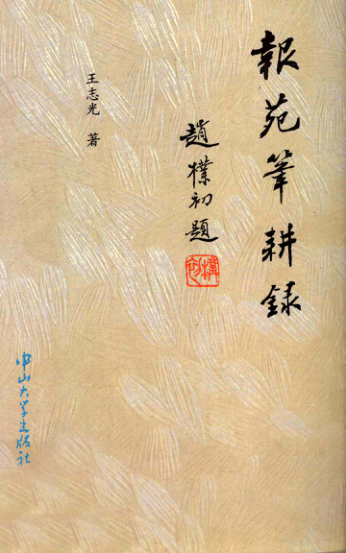 報苑筆耕録
趙樸初題
樸初
王志光 著
中山大学出版社